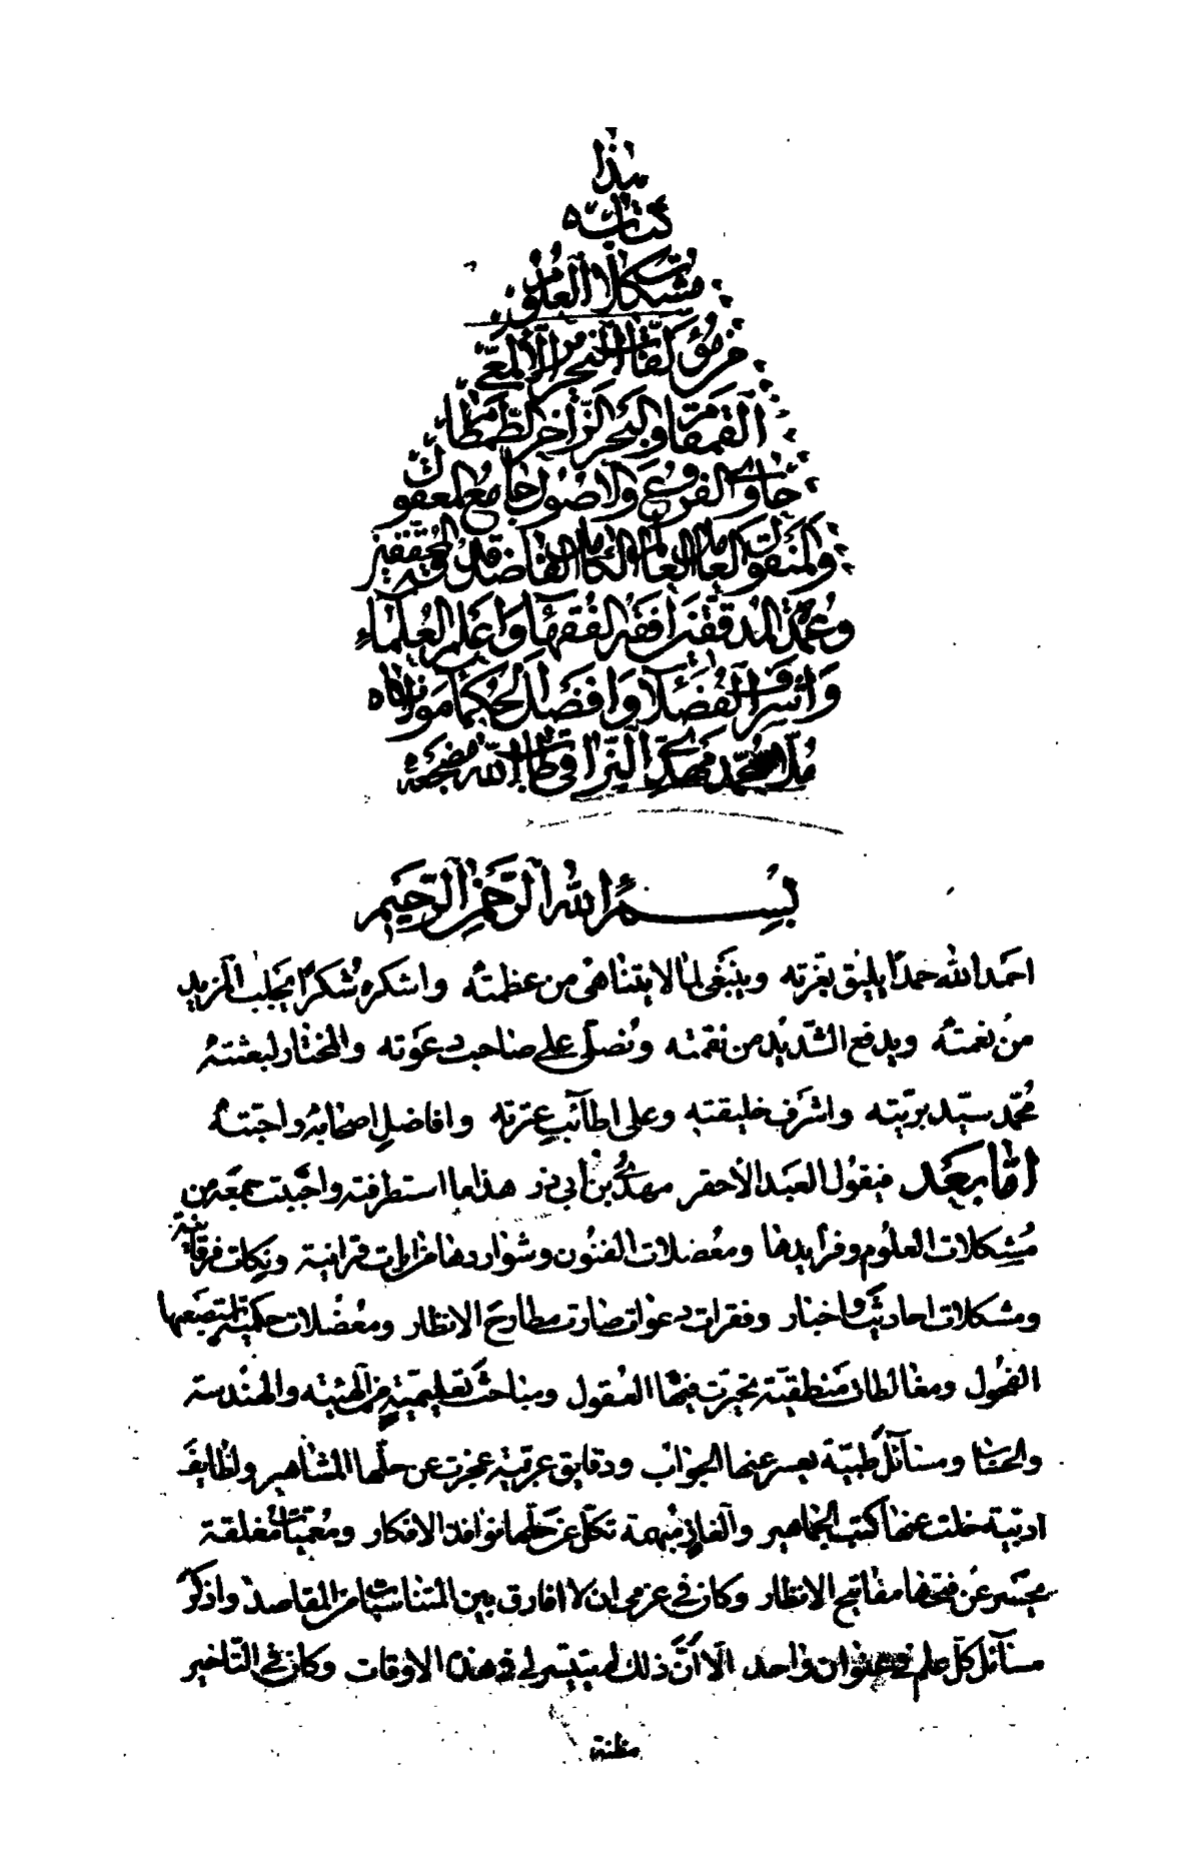 هذا
كتاب
مشكلات العلوم
من مؤلفات النحرير الألمعي
القمقام والبحر الزاخر الطمطام
حاوي الفروع والاصول جامع المعقول
والمنقول العالم العامل الكامل الفاضل قدوة المحققين
وعمدة المدققين افقه الفقهاء واعلم العلماء
واشرف الفضلاء وافضل الحكماء مولانا
ملا محمد مهدي النراقي طاب الله مضجعه
بسم الله الرحمن الرحيم
احمد الله حمدا يليق بعزته وينبغى لما لا يتناهى من عظمته واشكره شكرا يجلب المزيد
من نعمته ويدفع الشديد من نقمته ونصلى على صاحب دعوته والمختار لبعثته
محمد سيد بريته واشرف خليقته وعلى اطآئب عترته وافاضل اصحابه واحبته
امّا بعد فيقول العبد الأحقر مهدى بن أبي ذر هذا ما استطرفته واحببت جمعه من
مشكلات العلوم وفرايدها ومعضلات الفنون وشواردها من ايات قرانية ونكات فرقانية
ومشكلات احاديث واخبار وفقرات دعوات صارت مطارح الانظار ومعضلات حكمية لم يتضعها
الفحول ومغالطات منطقية تحيرت فيها العقول ومباحث تعليمية من الهيئة والهندسة
والحساب ومسآئل طبية يعسر عنها الجواب ودقايق عربية عجزت عن حلها المشاهير ولطايف
ادبية خلت عنها كتب الجماهير والغاز مبهمة تكلّ عن حلها نوافذ الافكار ومعميات مغلقة
يحسر عن فتحها مفاتيح الانظار وكان في عزمى ان لا افارق بين المتناسبات من المقاصد واذكر
مسآئل كل علم في عنوان واحد الّا أنّ ذلك لم يتيسر لى في هذه الاوقات وكان في التأخير
مظنة